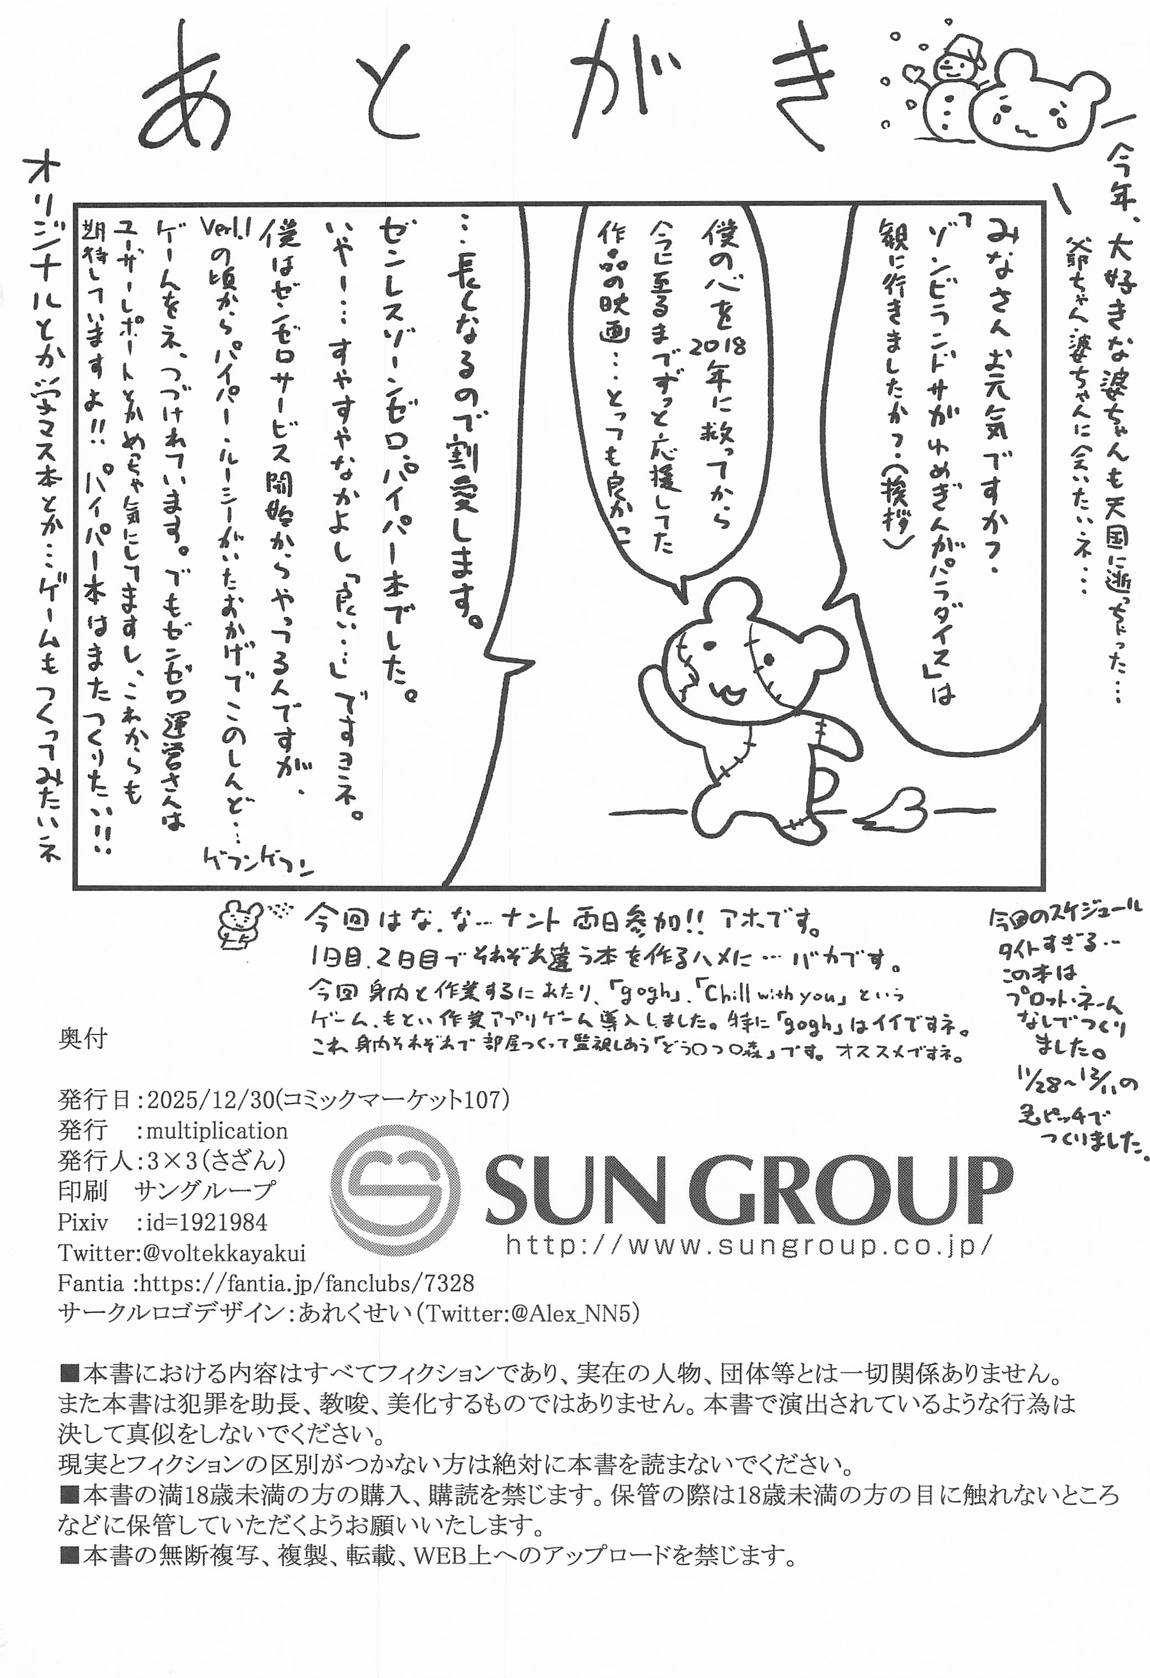 あとがき
今年、大好きな婆ちゃんも天国に逝っちゃった…
爺ちゃん婆ちゃんに会いたいネ…
みなさんお元気ですか？
「ゾンビランドサガゆめぎんがパラダイス」は
観に行きましたか？(挨拶)
僕の心を2018年に救ってから
今に至るまでずっと応援してた
作品の映画…とっても良かっ
…長くなるので割愛します。
ゼンレスゾーンゼロ、パイパー本でした。
いやー…すやすやなかよし「良い…」ですヨネ。
僕はゼンゼロサービス開始からやってる人ですが、
Ver1.1の頃からパイパー・ルーシーがいたおかげでこのしんど…
ゲフンゲフン
ゲームをネ、つづけれています。でもゼンゼロ運営さんは
ユーザーレポートとかめっちゃ気にしてますし、これからも
期待していますよ!! パイパー本はまたつくりたい!!
オリジナルとか学マス本とか…ゲームもつくってみたいネ
今回はな、な…ナント両日参加!! アホです。
1日目、2日目でそれぞれ違う本を作るハメに…バカです。
今回身内と作業するにあたり、「gogh」、「Chill with you」という
ゲーム、もとい作業アプリゲーム導入しました。特に「gogh」はイイですネ。
これ身内それぞれで部屋つくって監視しあう「どう○つ○森」です。オススメですネ。
今回のスケジュール
タイトすぎる…
この本は
プロット・ネーム
なしでつくり
ました。
11/28～12/11の
急ピッチで
つくりました。
奥付
発行日:2025/12/30(コミックマーケット107)
発行　:multiplication
発行人:3×3(さざん)
印刷　サングループ
Pixiv　:id=1921984
Twitter:@voltekkayakui
Fantia :https://fantia.jp/fanclubs/7328
サークルロゴデザイン:あれくせい(Twitter:@Alex_NN5)
SUN GROUP
http://www.sungroup.co.jp/
■本書における内容はすべてフィクションであり、実在の人物、団体等とは一切関係ありません。
また本書は犯罪を助長、教唆、美化するものではありません。本書で演出されているような行為は
決して真似をしないでください。
現実とフィクションの区別がつかない方は絶対に本書を読まないでください。
■本書の満18歳未満の方の購入、購読を禁じます。保管の際は18歳未満の方の目に触れないところ
などに保管していただくようお願いいたします。
■本書の無断複写、複製、転載、WEB上へのアップロードを禁じます。